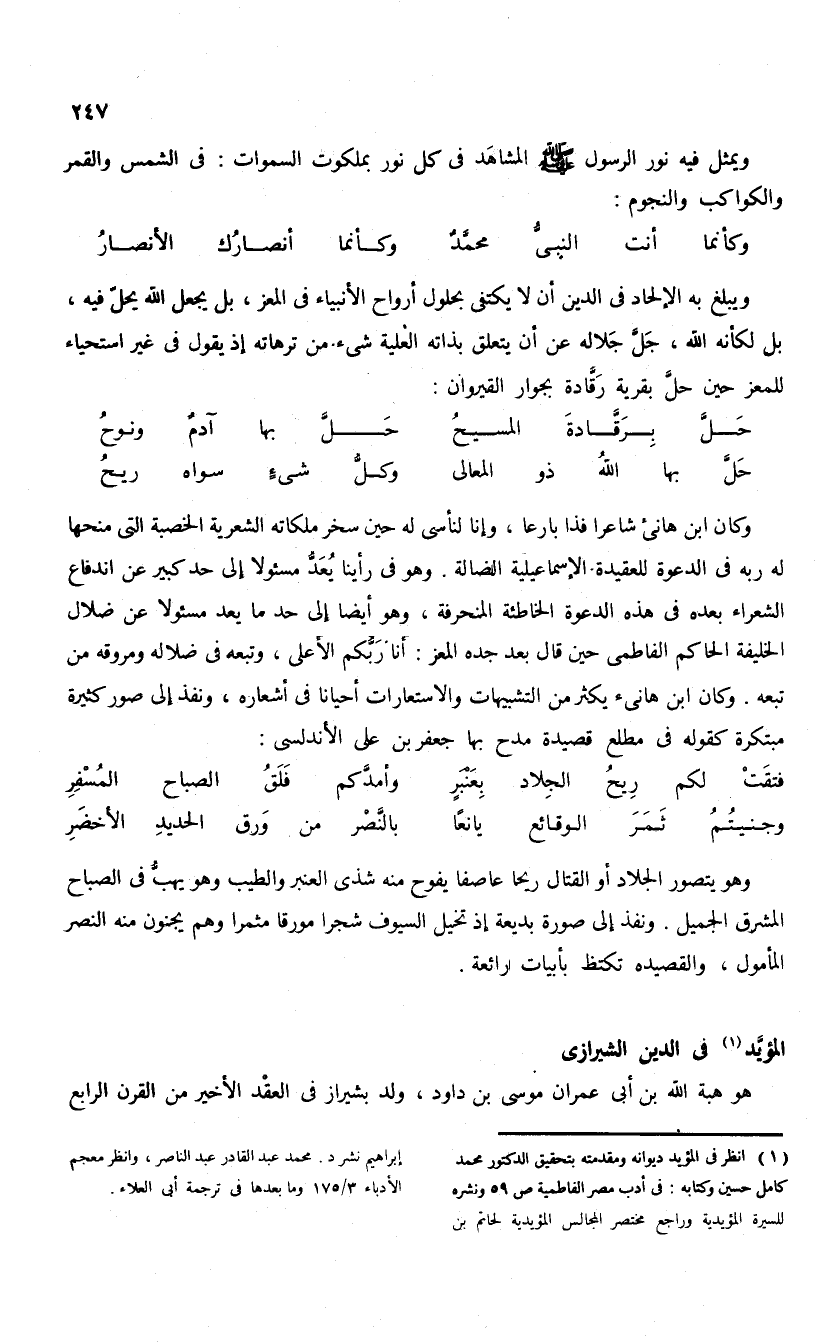 ٢٤٧
ويمثل فيه نور الرسول ﷺ المشاهَد فى كل نور بملكوت السموات : فى الشمس والقمر
والكواكب والنجوم :
وكأنما أنت النبىُّ محمَّدٌ وكـأنما أنصـارُك الأنصـارُ
ويبلغ به الإلحاد فى الدين أن لا يكتفى بحلول أرواح الأنبياء فى المعز ، بل يجعل الله يحلّ فيه ،
بل لكأنه الله ، جَلَّ جَلاله عن أن يتعلق بذاته العْلية شىء من ترهاته إذ يقول فى غير استحياء
للمعز حين حلَّ بقرية رَقَّادة بجوار القيروان :
حَـلَّ بِـرَقَّـادةَ المسـيـحُ حَـلَّ بها آدمٌ ونـوحُ
حَلَّ بها اللهُ ذو المعالى وكـلُّ شىءٍ سـواه ريـحُ
وكان ابن هانئ شاعرا فذا بارعا ، وإنا لنأسى له حين سخر ملكاته الشعرية الخصبة التى منحها
له ربه فى الدعوة للعقيدة الإسماعيلية الضالة . وهو فى رأينا يُعَدُّ مسئولا إلى حد كبير عن اندفاع
الشعراء بعده فى هذه الدعوة الخاطئة المنحرفة ، وهو أيضا إلى حد ما يعد مسئولا عن ضلال
الخليفة الحاكم الفاطمى حين قال بعد جده المعز : أنا رَبُّكم الأعلى ، وتبعه فى ضلاله ومروقه من
تبعه . وكان ابن هانىء يكثر من التشبيهات والاستعارات أحيانا فى أشعاره ، ونفذ إلى صور كثيرة
مبتكرة كقوله فى مطلع قصيدة مدح بها جعفر بن على الأندلسى :
فتقَتْ لكم رِيحُ الجِلاد بِعَنْبَرٍ وأمدَّكم فَلَقُ الصباح المُسْفِرِ
وجنـيـتُـمُ ثَـمَـرَ الـوقـائع يانعًا بالنَّصْر من وَرق الحديدِ الأخضَرِ
وهو يتصور الجلاد أو القتال ريحا عاصفا يفوح منه شذى العنبر والطيب وهو يهبُّ فى الصباح
المشرق الجميل . ونفذ إلى صورة بديعة إذ تخيل السيوف شجرا مورقا مثمرا وهم يجنون منه النصر
المأمول ، والقصيده تكتظ بأبيات رائعة .
المؤيَّد (١) فى الدين الشيرازى
هو هبة الله بن أبى عمران موسى بن داود ، ولد بشيراز فى العقْد الأخير من القرن الرابع
(١) انظر فى المؤيد ديوانه ومقدمته بتحقيق الدكتور محمد
كامل حسين وكتابه : فى أدب مصر الفاطمية ص ٥٩ ونشره
للسيرة المؤيدية وراجع مختصر المجالس المؤيدية لحاتم بن
إبراهيم نشر د . محمد عبد القادر عبد الناصر ، وانظر معجم
الأدباء ١٧٥/٣ وما بعدها فى ترجمة أبى العلاء .